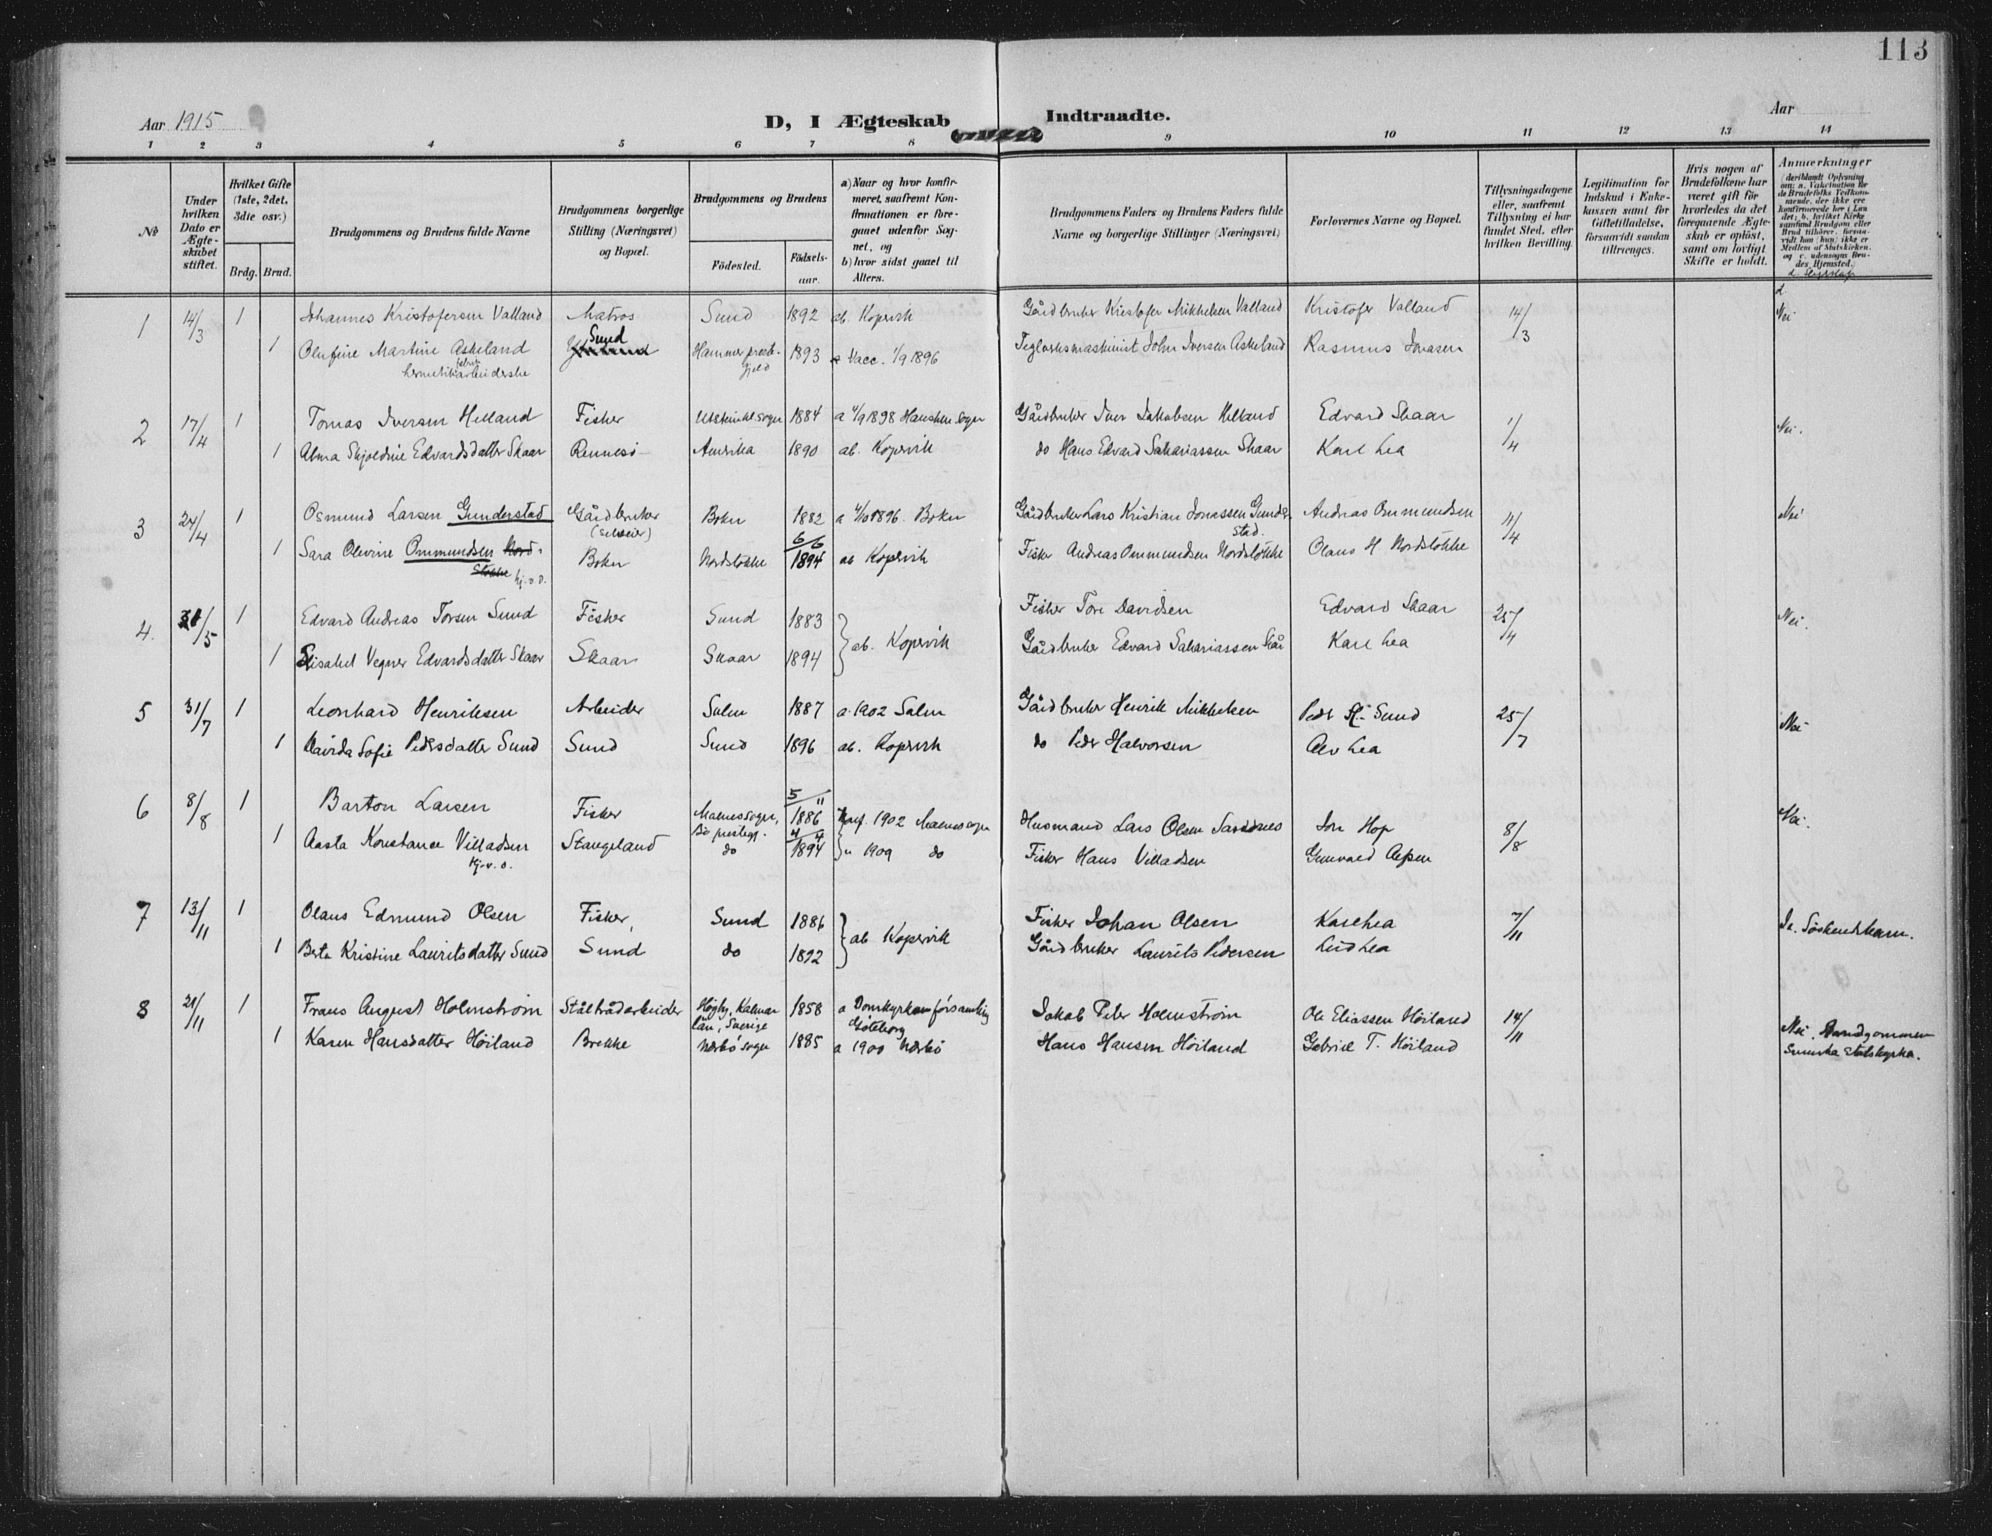 113
Aar 1915 D, I Ægteskab Indtraadte. Aar
1 2 3 4 5 6 7 8 9 10 11 12 13 14
No
Under hvilken Dato er Ægteskabet stiftet.
Hvilket Gifte (1ste, 2det, 3die osv.)
Brdg. Brud.
Brudgommens og Brudens fulde Navne
Brudgommens borgerlige Stilling (Næringsvei) og Bopæl.
Brudgommens og Brudens
Födested. Födselsaar.
a) Naar og hvor konfirmeret, saafremt Konfirmationen er foregaaet udenfor Sognet, og
b) hvor sidst gaaet til Alters.
Brudgommens Faders og Brudens Faders fulde Navne og borgerlige Stillinger (Næringsvei)
Forlovernes Navne og Bopæl.
Tillysningsdagene eller, saafremt Tillysning ei har fundet Sted, efter hvilken Bevilling.
Legitimation for Indskud i Enkekassen samt for Giftetilladelse, forsaavidt saadan tiltrænges.
Hvis nogen af Brudefolkene har været gift för hvorledes da det foregaaende Ægteskab er oplöst, samt om lovligt Skifte er holdt.
Anmærkninger (deriblandt Oplysning om: a. Vakcination for de Brudefolks Vedkommende, der ikke ere konfirmerede her i Landet; b. hvilket Kirkesamfund Brudgom eller Brud tilhörer, forsaavidt han (hun) ikke er Medlem af Statskirken, og c. udensogns Brudes Hjemsted.)
d. Slegtskap
1 14/3 1 Johannes Kristofersen Valland Matros Sund 1892 ab. Kopervik Gårdbruker Kristofer Mikkelsen Valland Kristofer Valland 14/3 d. Nei
1 Olufine Martine Askeland Sund Hammer prestegjeld 1893 a Vacc. 1/9 1896 Teglverksmaskinist John Iversen Askeland Rasmus Jonasen
hermetikfabrikarbeiderske
2 17/4 1 Tomas Iversen Helland Fisker Utstein kl. sogn 1884 a 4/9 1898 Hauskeu sogn Gårdbruker Iver Jakobsen Helland Edvard Skaar 1/4 Nei.
1 Alma Skjoldine Edvardsdatter Skaar Rennesö Amerika 1890 ab. Kopervik do Hans Edvard Sakariassen Skaar Karl Lea
3 24/4 1 Osmund Larsen Gunderstad Gårdbruker (selveier) Bokn 1882 a 4/10 1896. Bokn Gårdbruker Lars Kristian Jonassen Gunderstad Andreas Ommundsen 11/4 Nei
1 Sara Olivine Ommundsen Nordstokke kj.v.o. Bokn Nordstokke 6/6 1894 ab Kopervik Fisker Andreas Ommundsen Nordstokke Olaus H Nordstokke
4. 31/5 1 Edvard Andreas Torsen Sund Fisker Sund 1883 ab. Kopervik Fisker Tore Davidsen Edvard Skaar 25/4 Nei.
1 Elisabet Vegner Edvardsdatter Skaar Skaar Skaar 1894 Gårdbruker Edvard Sakariassen Skår Karl Lea
5 31/7 1 Leonhard Henriksen Arbeider Salen 1887 a. 1902 Salen Gårdbruker Henrik Mikkelsen Peder H. Sund 25/7 Nei
1 Davida Sofie Pedersdatter Sund Sund Sund 1896 ab. Kopervik do Peder Halvorsen Alv Lea
6 8/8 1 Barton Larsen Fisker Malnes sogn, Bö prestegj. 5/11 1886 konf. 1902 Malnes sogn Husmand Lars Olsen Jon Hop 8/8 Nei.
1 Aasta Konstance Villadsen kj.v.o. Stangeland do 4/4 1894 " 1909 do Fisker Hans Villadsen Gunvald
7 13/11 1 Olaus Edmund Olsen Fisker, Sund 1886 ab Kopervik Fisker Johan Olsen Karl Lea 7/11 Ja. Söskendebarn.
1 Berta Kristine Lauritsdatter Sund Sund do 1892 Gårdbruker Laurits Pedersen Lud Lea
8 21/11 1 Frans August Holmström Ståltrådarbeider Högby, Kalmar län, Sverige 1858 a Domkyrkoförsamling Göteborg Jakob Peter Holmström Ole Eliassen Höiland 14/11 Nei. Brudgommen Svenska statskyrka.
1 Karen Hansdatter Höiland Brekke Nærbö sogn 1885 a 1900 Nærbö Hans Hansen Höiland Gabriel T. Höiland